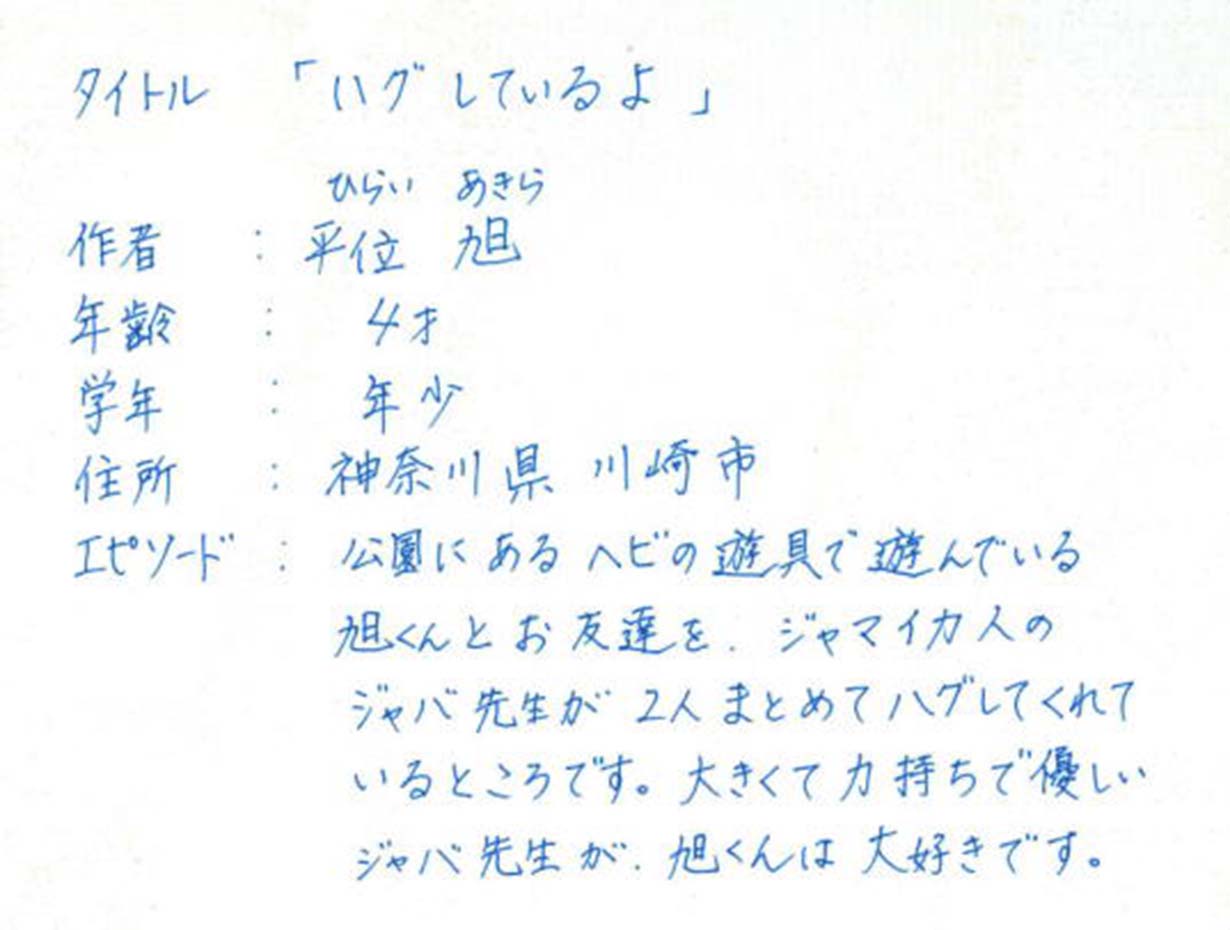 タイトル 「ハグしているよ」
ひらい あきら
作者 : 平位 旭
年齢 : 4才
学年 : 年少
住所 : 神奈川県 川崎市
エピソード : 公園にあるヘビの遊具で遊んでいる
旭くんとお友達を、ジャマイカ人の
ジャバ先生が2人まとめてハグしてくれて
いるところです。大きくて力持ちで優しい
ジャバ先生が、旭くんは大好きです。